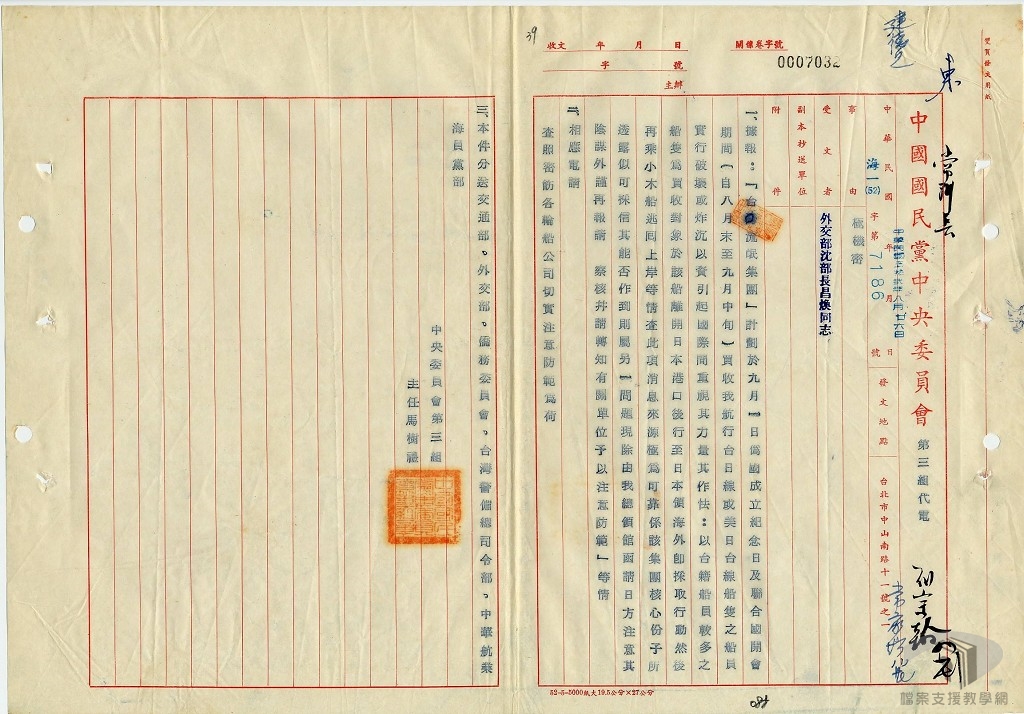 雙頁發文用紙
中國國民黨中央委員會 第三組代電
中華民國 年 月 日
中華民國五十二年八月廿六日
海一(52)字第7186號
發文地點 台北市中山南路十一號之一
事由 極機密
受文者 外交部沈部長昌煥同志
副本抄送單位
附件
關係卷字號
0007032
收文 年 月 日
字 號
主辦
39
一、據報：「台 流氓集團」計劃於九月一日偽國成立紀念日及聯合國開會
期間（自八月末至九月中旬）買收我航行台日線或美日台線船隻之船員
實行破壞或炸沉以資引起國際間重視其力量其作法：以台籍船員較多之
船隻為買收對象於該船離開日本港口後行至日本領海外即採取行動然後
再乘小木船逃回上岸等情查此項消息來源極為可靠係該集團核心份子所
透露似可採信其能否作到則屬另一問題現除由我總領館函請日方注意其
陰謀外謹再報請 察核并請轉知有關單位予以注意防範」等情
二、相應電請
查照密飭各輪船公司切實注意防範為荷
52-5-5000紙大19.5公分×27公分
三、本件分送交通部、外交部、僑務委員會、台灣警備總司令部、中華航業
海員黨部
中央委員會第三組
主任馬樹禮
檔案支援教學網